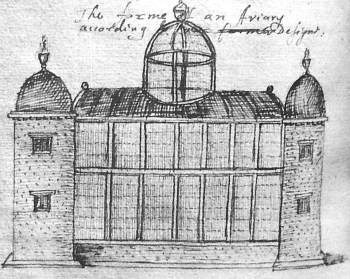 The forme of an Aviary
according to former Designe.